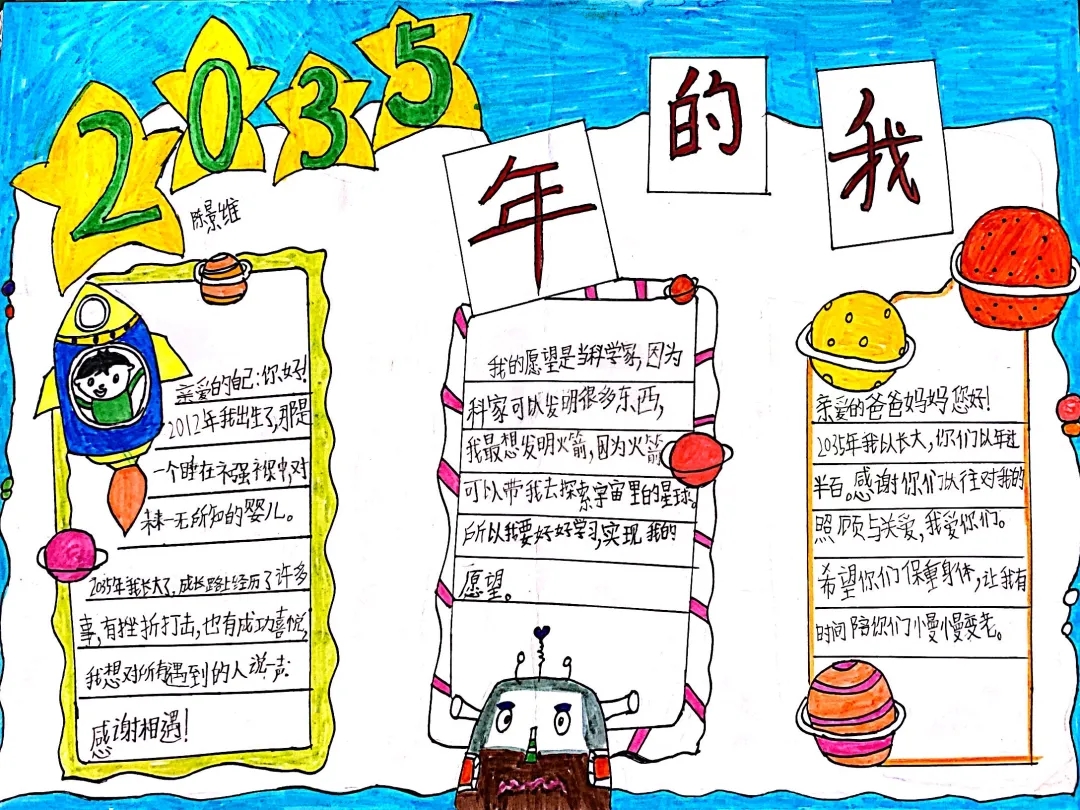 2035
年的我
陈景维
亲爱的自己:你好!
2012年我出生了,那是
一个睡在襁褓中,对
未来一无所知的婴儿。
2035年我长大了,成长路上经历了许多
事,有挫折打击,也有成功喜悦,
我想对所有遇到的人说一声:
感谢相遇!
我的愿望是当科学家,因为
科家可以发明很多东西,
我最想发明火箭,因为火箭
可以带我去探索宇宙里的星球。
所以我要好好学习,实现我的
愿望。
亲爱的爸爸妈妈您好!
2035年我以长大,你们以年过
半百。感谢你们以往对我的
照顾与关爱,我爱你们。
希望你们保重身体,让我有
时间陪你们慢慢变老。